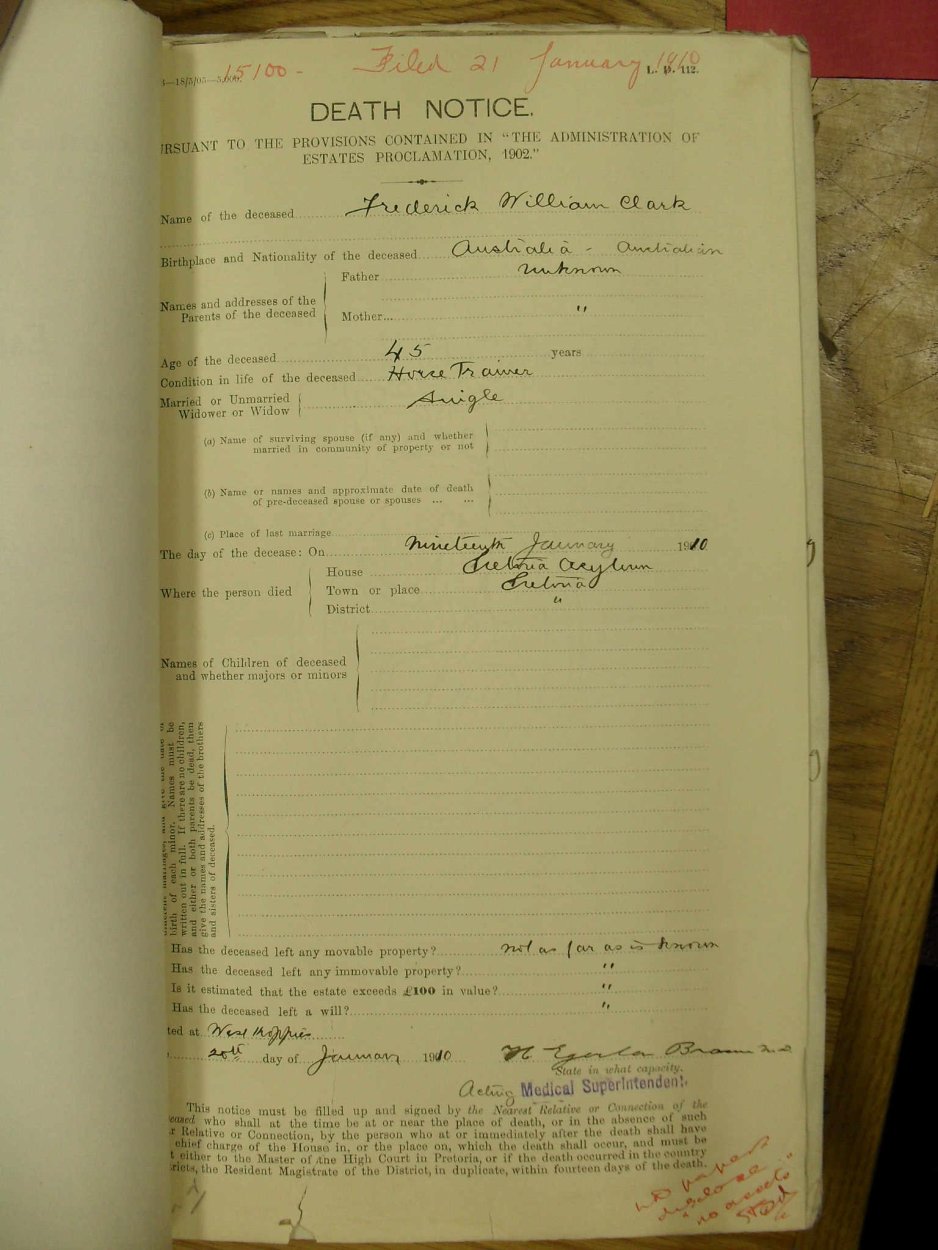 15100 - Filed 21 January 1910
L. D. 112.
DEATH NOTICE.
RSUANT TO THE PROVISIONS CONTAINED IN "THE ADMINISTRATION OF
ESTATES PROCLAMATION, 1902."
Name of the deceased Frederick William Clark
Birthplace and Nationality of the deceased Australia - Australian
Names and addresses of the Parents of the deceased
Father unknown
Mother "
Age of the deceased 45 years
Condition in life of the deceased Horse Trainer
Married or Unmarried
Widower or Widow Single
(a) Name of surviving spouse (if any) and whether
married in community of property or not
(b) Name or names and approximate date of death
of pre-deceased spouse or spouses ... ...
(c) Place of last marriage
The day of the decease: On Nineteenth January 1910
Where the person died
House Pretoria Asylum
Town or place Pretoria
District "
Names of Children of deceased
and whether majors or minors
birth of each minor. Names must be
written out in full. If there are no children,
and either or both parents be dead, then
give the names and addresses of the brothers
and sisters of deceased.
Has the deceased left any movable property? not as far as is known
Has the deceased left any immovable property? "
Is it estimated that the estate exceeds £100 in value? "
Has the deceased left a will? "
ted at West Koppies
20th day of January 1910
State in what capacity.
Acting Medical Superintendent.
This notice must be filled up and signed by the Nearest Relative or Connection of the
eased who shall at the time be at or near the place of death, or in the absence of such
r Relative or Connection, by the person who at or immediately after the death shall have
chief charge of the House in, or the place on, which the death shall occur, and must be
t either to the Master of the High Court in Pretoria, or if the death occurred in the country
ricts, the Resident Magistrate of the District, in duplicate, within fourteen days of the death.
papers
disclose
"no assets"